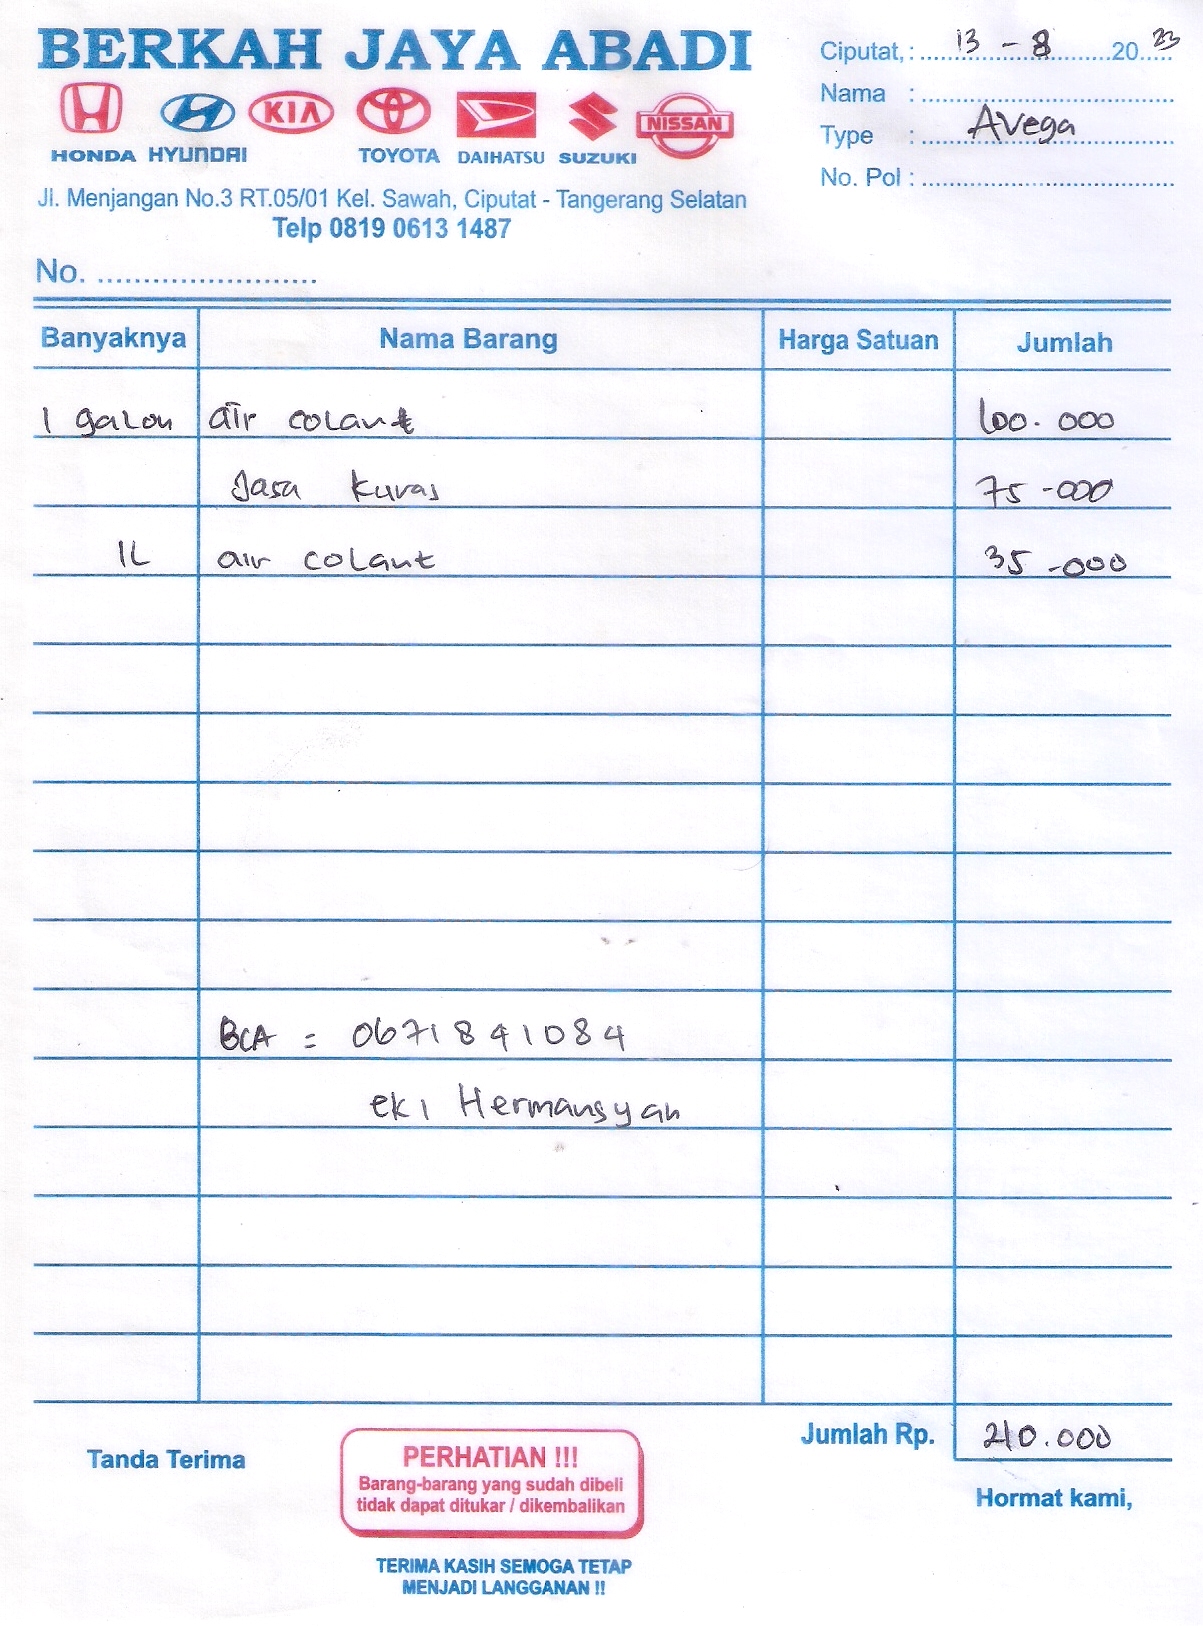 BERKAH JAYA ABADI
HONDA HYUNDAI KIA TOYOTA DAIHATSU SUZUKI NISSAN
Jl. Menjangan No.3 RT.05/01 Kel. Sawah, Ciputat - Tangerang Selatan
Telp 0819 0613 1487
Ciputat, : 13 - 8 2023
Nama :
Type : AVega
No. Pol :
No.
Banyaknya Nama Barang Harga Satuan Jumlah
1 galon air colant 100.000
Jasa kuras 75-000
1L air colant 35-000
BCA = 0671841084
eki Hermansyah
Jumlah Rp. 210.000
Tanda Terima
PERHATIAN !!!
Barang-barang yang sudah dibeli
tidak dapat ditukar / dikembalikan
Hormat kami,
TERIMA KASIH SEMOGA TETAP
MENJADI LANGGANAN !!